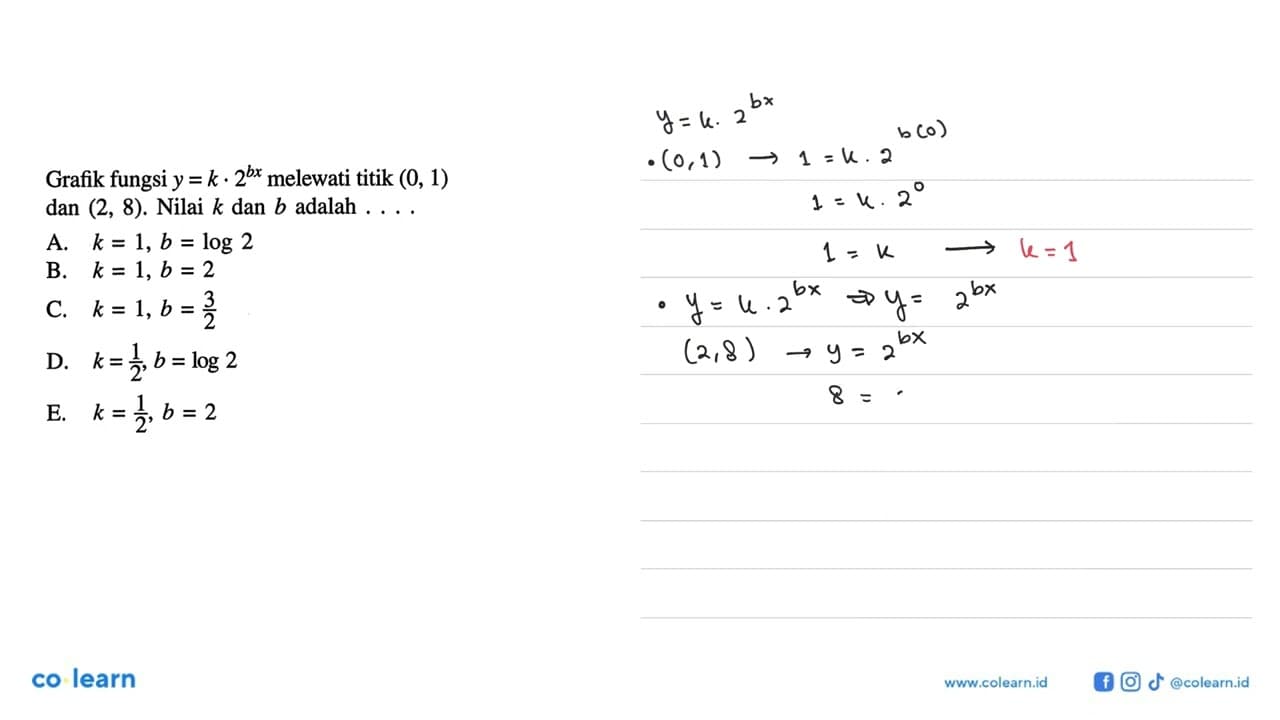 Grafik fungsi y = k · 2^{bx} melewati titik (0, 1)
dan (2, 8). Nilai k dan b adalah . . . .
A. k = 1, b = log 2
B. k = 1, b = 2
C. k = 1, b = 3/2
D. k = 1/2, b = log 2
E. k = 1/2, b = 2
y = k. 2^{bx}
• (0,1) → 1 = k . 2^{b(0)}
1 = k. 2^0
1 = k → k = 1
• y = k . 2^{bx} ⇒ y = 2^{bx}
(2,8) → y = 2^{bx}
8 =
co·learn
www.colearn.id @colearn.id